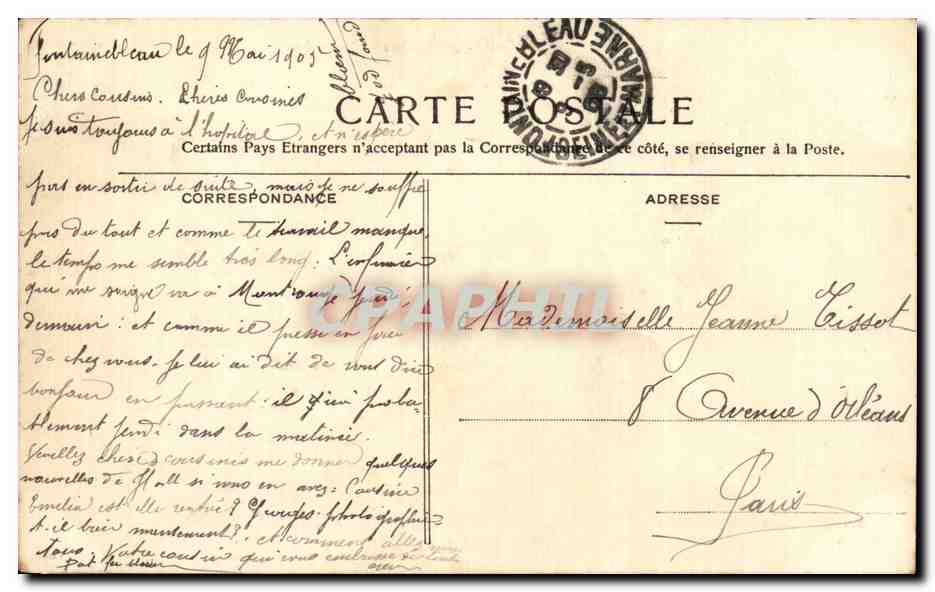 Fontainebleau le 9 Mai 1905
Chers Cousins. Chères Cousines
CARTE POSTALE
Je suis toujours à l'hôpital, et n'espère
Certains Pays Etrangers n'acceptant pas la Correspondance de ce côté, se renseigner à la Poste.
pas en sortir de suite, mais je ne souffre
CORRESPONDANCE
pas du tout et comme le travail manque,
le temps me semble très long: L'infirmier
qui me soigne va à Montrouge jeudi
et comme il passe en face
de chez vous. Je lui ai dit de vous dire
bonjour en passant: il ira proba-
blement jeudi dans la matinée.
Veuillez chers cousins me donner quelques
nouvelles de si vous en avez: Cousine
Emelia est elle rentrée? Georges photographie
t-il bien maintenant? et comment allez
tous. Votre cousin qui vous
ADRESSE
Mademoiselle Jeanne Tissot
8 Avenue d'Orléans
Paris
FONTAINEBLEAU SEINE ET MARNE
CPAPHIL